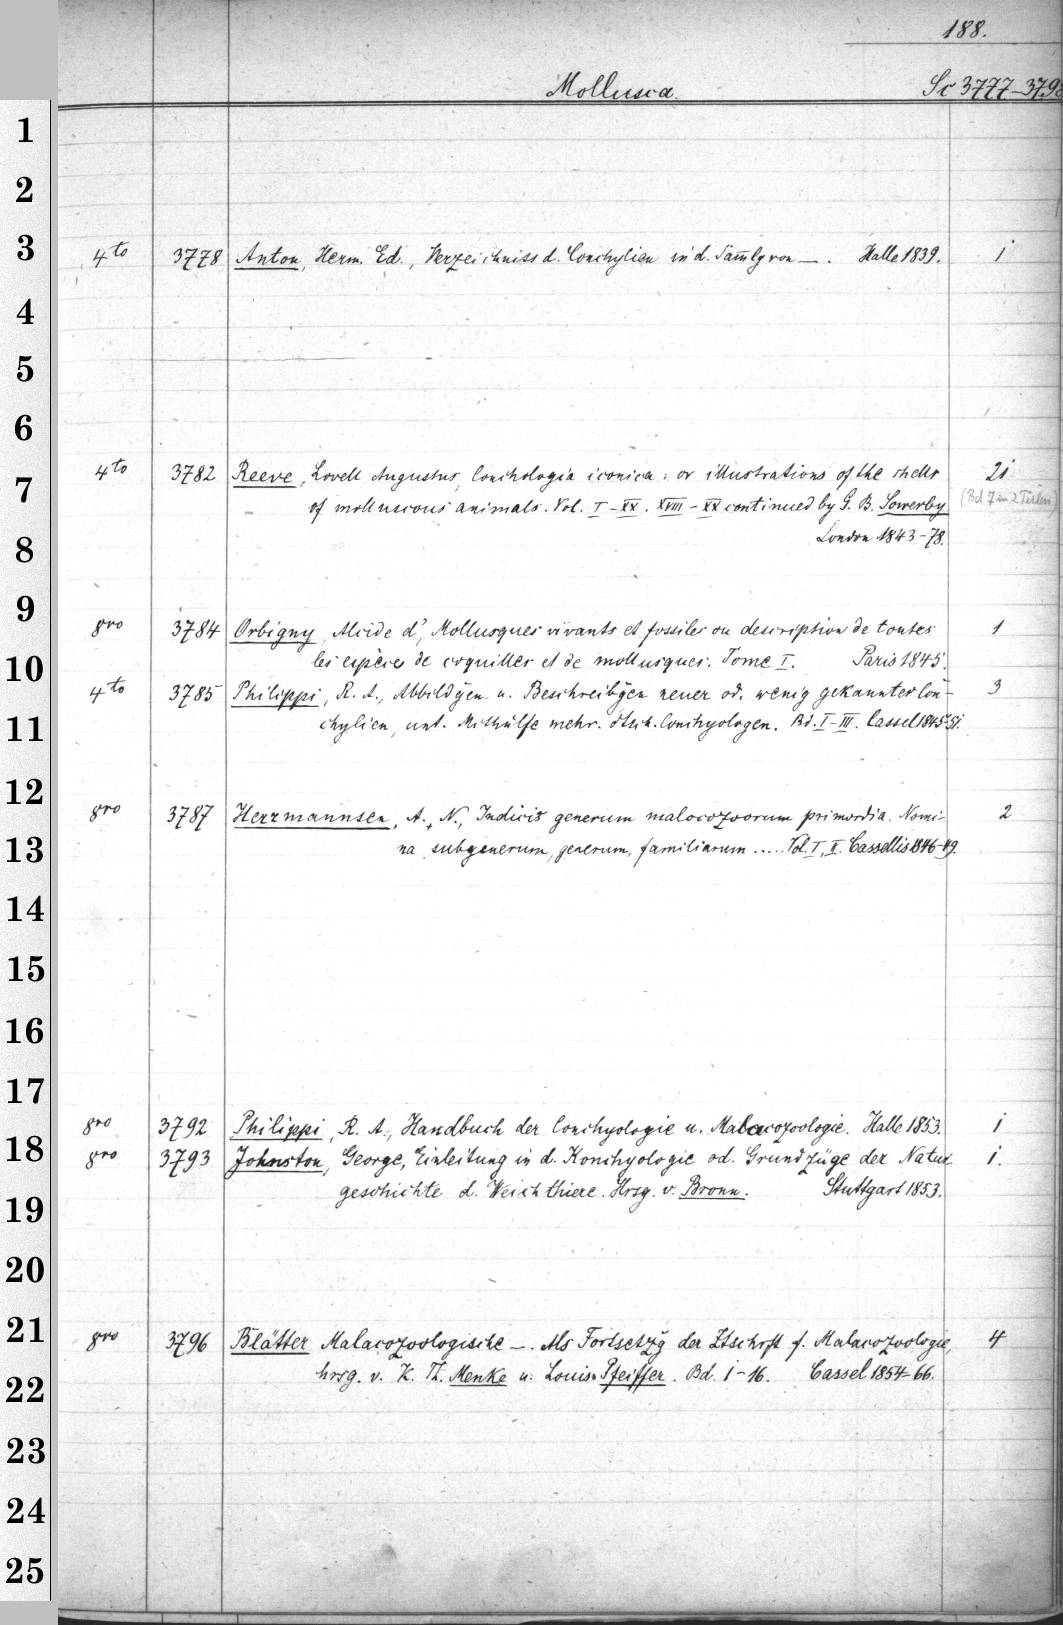 188.
Mollusca. Sc 3777-3798
1
2
3 4to 3778 Anton, Herm. Ed., Verzeichniss d. Conchylien in d. Sam̄lg von —. Halle 1839. 1
4
5
6
7 4to 3782 Reeve, Lovell Augustus, Conchologia iconica: or illustrations of the shells 21
of molluscous animals. Vol. I-XX. XVIII-XX continued by G. B. Sowerby (Bd 7 in 2 Teilen)
8 London 1843-78.
9 8vo 3784 Orbigny, Alcide d', Mollusques vivants et fossiles ou description de toutes 1
10 les espèces de coquilles et de mollusques. Tome I. Paris 1845.
4to 3785 Philippi, R. A., Abbildgen u. Beschreibgen neuer od. wenig gekannter Con- 3
11 chylien, unt. Mithülfe mehr. dtsch. Conchyologen. Bd. I-III. Cassel 1845-51.
12 8vo 3787 Herrmannsen, A. N., Indicis generum malacozoorum primordia. Nomi- 2
13 na subgenerum, generum, familiarum ..... Vol. I, II. Cassellis 1846-49.
14
15
16
17
8vo 3792 Philippi, R. A., Handbuch der Conchyologie u. Malacozoologie. Halle 1853. 1
18 8vo 3793 Johnston, George, Einleitung in d. Konchyologie od. Grundzüge der Natur 1.
19 geschichte d. Weichthiere. Hrsg. v. Bronn. Stuttgart 1853.
20
21 8vo 3796 Blätter Malacozoologische —. Als Fortsetzg der Ztschrft f. Malacozoologie, 4
22 hrsg. v. K. Th. Menke u. Louis Pfeiffer. Bd. 1-16. Cassel 1854-66.
23
24
25